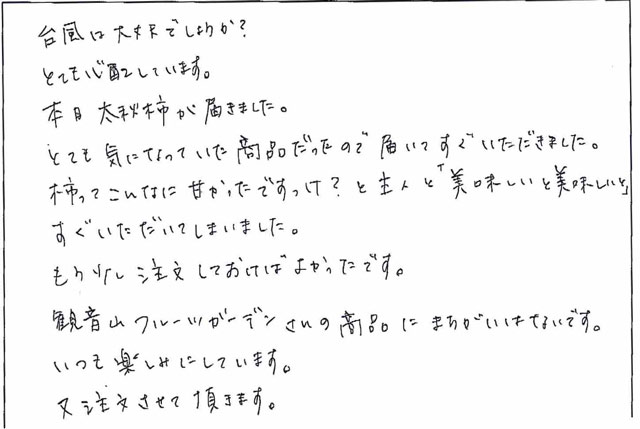 台風は大丈夫でしょうか?
とても心配しています。
本日太秋柿が届きました。
とても気になっていた商品だったので届いてすぐいただきました。
柿ってこんなに甘かったですっけ?と主人と「美味しいと美味しいと」
すぐいただいてしまいました。
もう少し注文しておけばよかったです。
観音山フルーツガーデンさんの商品にまちがいはないです。
いつも楽しみにしています。
又注文させて頂きます。